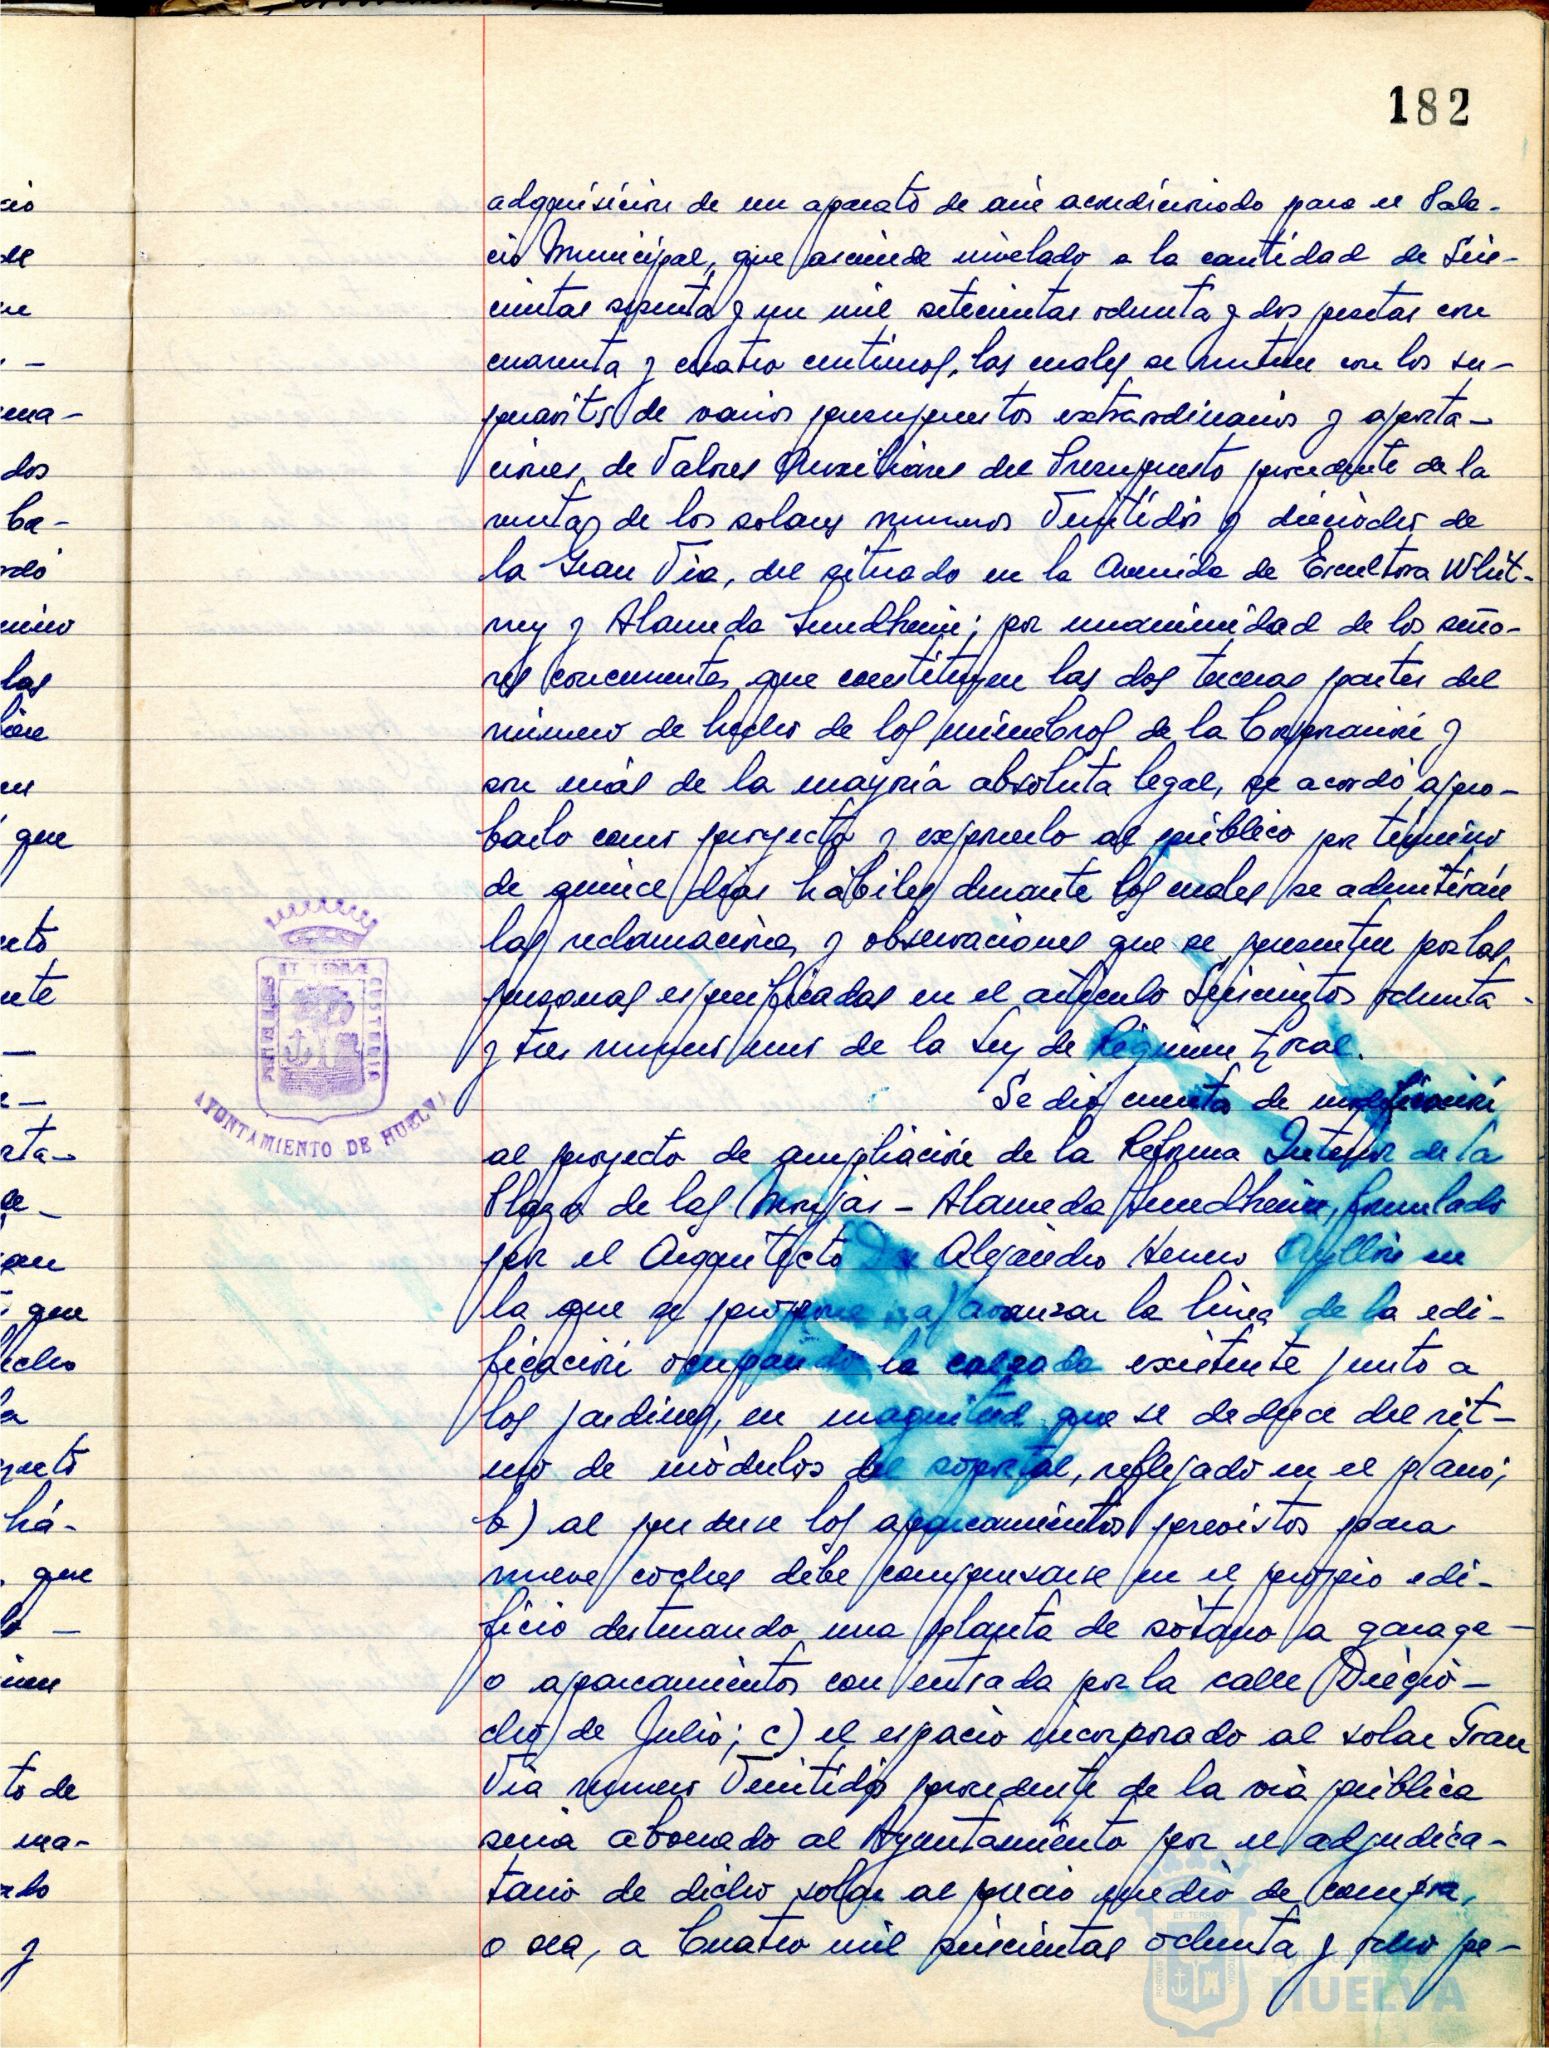 182
adquisición de un aparato de aire acondicionado para el Pala-
cio Municipal, que asciende nivelado a la cantidad de Seis-
cientas sesenta y un mil setecientas ochenta y dos pesetas con
cuarenta y cuatro centimos, las cuales se nutren con los su-
peravits de varios presupuestos extraordinarios y aporta-
ciones de Valores Auxiliares del Presupuesto procedente de la
ventas de los solares numeros Veintidós y dieciocho de
la Gran Vía, del situado en la Avenida de Escultora Whit-
ney y Alameda Sundheim; por unanimidad de los seño-
res concurrentes que constituyen las dos terceras partes del
número de hecho de los miembros de la Corporación y
son más de la mayoría absoluta legal, se acordó apro-
barlo como proyecto y exponerlo al público por término
de quince días hábiles durante los cuales se admitirán
las reclamaciones y observaciones que se presenten por las
personas especificadas en el artículo Seiscientos ochenta
y tres numero uno de la Ley de Régimen Local.
Se dio cuenta de modificación
al proyecto de ampliación de la Reforma Interior de la
Plaza de las Monjas - Alameda Sundheim, formulado
por el Arquitecto Don Alejandro Herrero Ayllón en
la que se propone: a) avanzar la línea de la edi-
ficación ocupando la calzada existente junto a
los jardines, en magnitud que se deduce del rit-
mo de módulos del soportal, reflejado en el plano;
b) al perderse los aparcamientos previstos para
nueve coches debe compensarse en el propio edi-
ficio destinando una planta de sótano a garage
o aparcamientos con entrada por la calle Diecio-
cho de Julio; c) el espacio incorporado al solar Gran
Vía numero Veintidós procedente de la vía pública
seria abonado al Ayuntamiento por el adjudica-
tario de dicho solar al precio medio de compra,
o sea, a Cuatro mil seiscientas ochenta y ocho pe-
AYUNTAMIENTO DE HUELVA
HUELVA